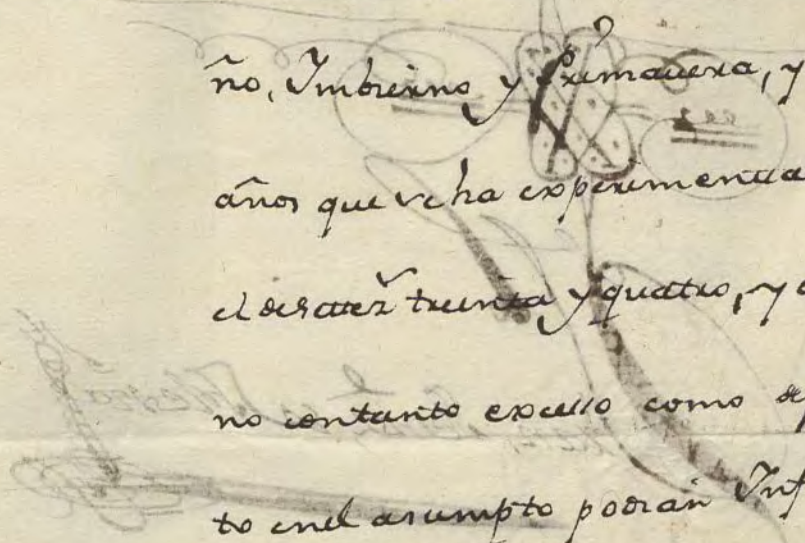 ño, Imbierno y Primauera, y
años que se ha experimenta
el de setez.<sup>r</sup> treinta y quatro, y
no contanto excesso como de
to enel asumpto podrán Inf